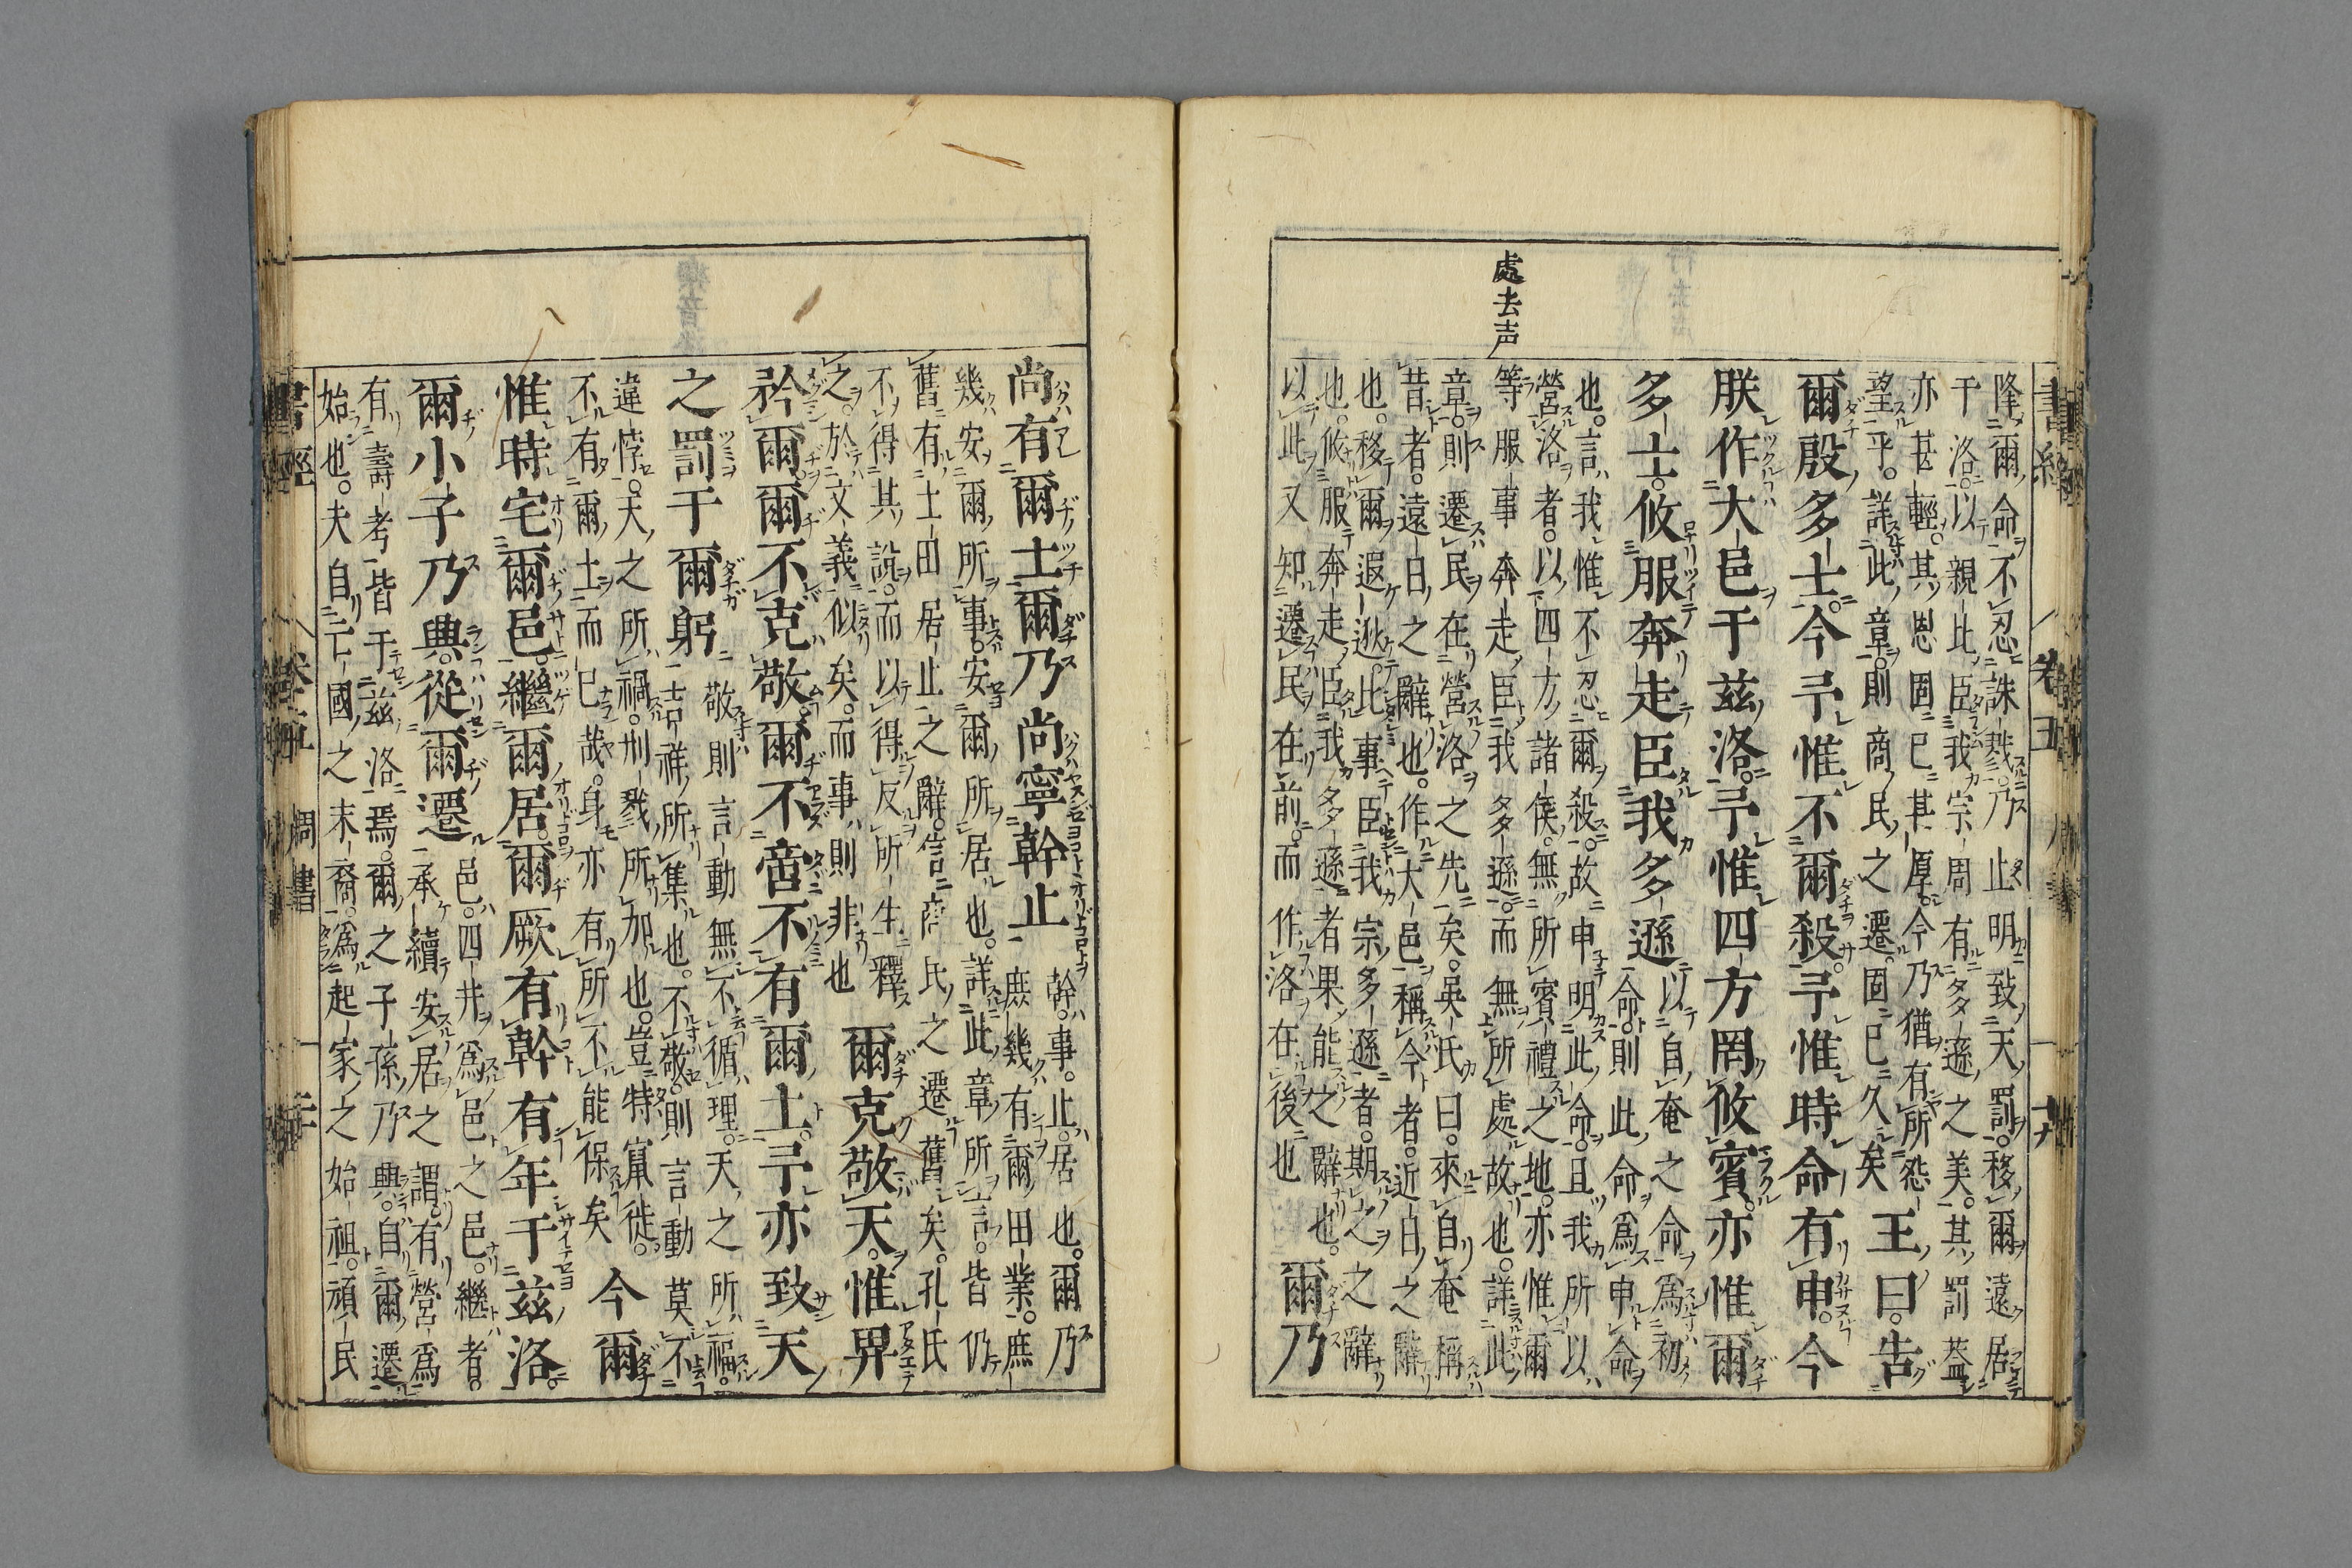 書經 卷五
處去声
降爾命不忍誅戮。乃止明致天罰。移爾遠居
于洛。以親比臣我宗周有多遜之美。其罰蓋
亦甚輕。其恩固已甚厚。今乃猶有所怨
望乎。詳此章。則商民之遷。固已久矣
王曰。告
爾殷多士。今予惟不爾殺。予惟時命有申。今
朕作大邑于茲洛。予惟四方罔攸賓。亦惟爾
多士。攸服奔走臣我多遜
以自奄之命為初
命。則此命為申命
也。言我惟不忍爾殺。故申明此命。且我所以
營洛者。以四方諸侯。無所賓禮之地。亦惟爾
等服事奔走臣我多遜。而無所處故也。詳此
章。則遷民在營洛之先矣。吳氏曰。來自奄稱
昔者。遠日之辭也。作大邑稱今者。近日之辭
也。移爾遐逖。比事臣我宗多遜者。期之之辭
也。攸服奔走臣我多遜者。果能之辭也。
以此又知遷民在前。而作洛在後也
爾乃
尚有爾土。爾乃尚寧幹止
幹。事。止。居也。爾乃
庶幾有爾田業。庶
幾安爾所事。安爾所居也。詳此章所言。皆仍
舊有土田居止之辭。信商民之遷舊矣。孔氏
不得其說。而以得反所生釋
之。於文義似矣。而事則非也
爾克敬。天惟畀
矜爾。爾不克敬。爾不啻不有爾土。予亦致天
之罰于爾躬
敬則言動無不循理。天之所福。
吉祥所集也。不敬。則言動莫不
違悖。天之所禍。刑戮所加也。豈特竄徙。
不有爾土而已哉。身亦有所不能保矣
今爾
惟時宅爾邑。繼爾居。爾厥有幹有年于茲洛。
爾小子乃興。從爾遷
邑。四井為邑之邑。繼者。
承續安居之謂。有營為
有壽考。皆于茲洛焉。爾之子孫乃興。自爾遷
始也。夫自亡國之末裔。為起家之始祖。頑民
書經 卷五 周書